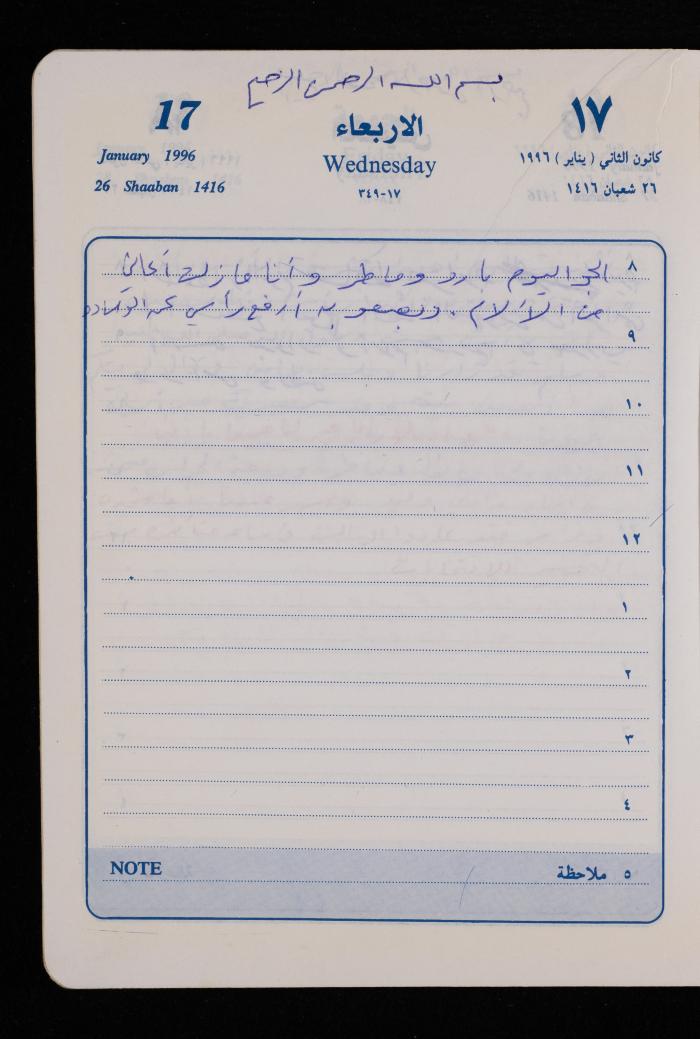 بسم الله الرحمن الرحيم
17 الاربعاء ١٧
January 1996 Wednesday كانون الثاني ( يناير ) ١٩٩٦
26 Shaaban 1416 ١٧-٣٤٩ ٢٦ شعبان ١٤١٦
٨ الجو اليوم بارد وماطر وأنا مازلت أعاني
من الآلام . وبصعوبه أرفع رأسي عن الوساده
٩
١٠
١١
١٢
١
٢
٣
٤
NOTE ٥ ملاحظة